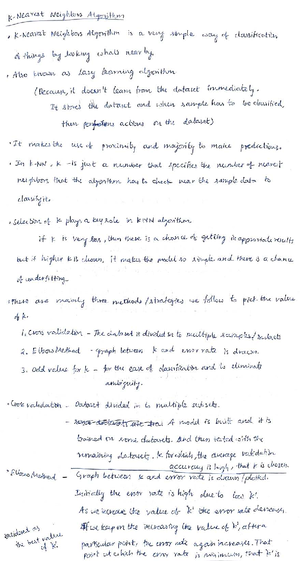 K-Nearest Neighbors Algorithm
• K-Nearest Neighbors Algorithm is a very simple way of classification
of things by looking what's near by
• Also known as Lazy learning algorithm
(Because, it doesn't learn from the dataset immediately.
It stores the dataset and when sample has to be classified,
then performs actions on the dataset)
• It makes the use of proximity and majority to make predictions.
• In K-NN, K - is just a number that specifies the number of nearest
neighbors that the algorithm has to check near the sample data to
classify it.
• Selection of K plays a key role in KNN algorithm
if K is very low, then there is a chance of getting inappropriate results
but if higher K is chosen, it makes the model so simple and there is a chance
of underfitting.
• There are mainly three methods/strategies we follow to pick the value
of K.
1. Cross validation - The dataset is divided in to multiple samples/subsets
2. Elbow Method - graph between K and error rate is drawn.
3. Odd value for K - for the ease of classification and to eliminate
ambiguity.
• Cross validation - Dataset divided in to multiple subsets.
- A model is built and it is
trained on some datasets. And then tested with the
remaining dataset. K for which, the average validation
accuracy is high, that K is chosen
• Elbow Method - Graph between K and error rate is drawn/plotted.
Initially the error rate is high due to less 'K'.
As we increase the value of 'K' the error rate decreases.
If we keep on the increasing the value of 'K', after a
particular point, the error rate again increases. That
point at which the error rate is minimum, that 'K' is
as
the best value
of 'K'.